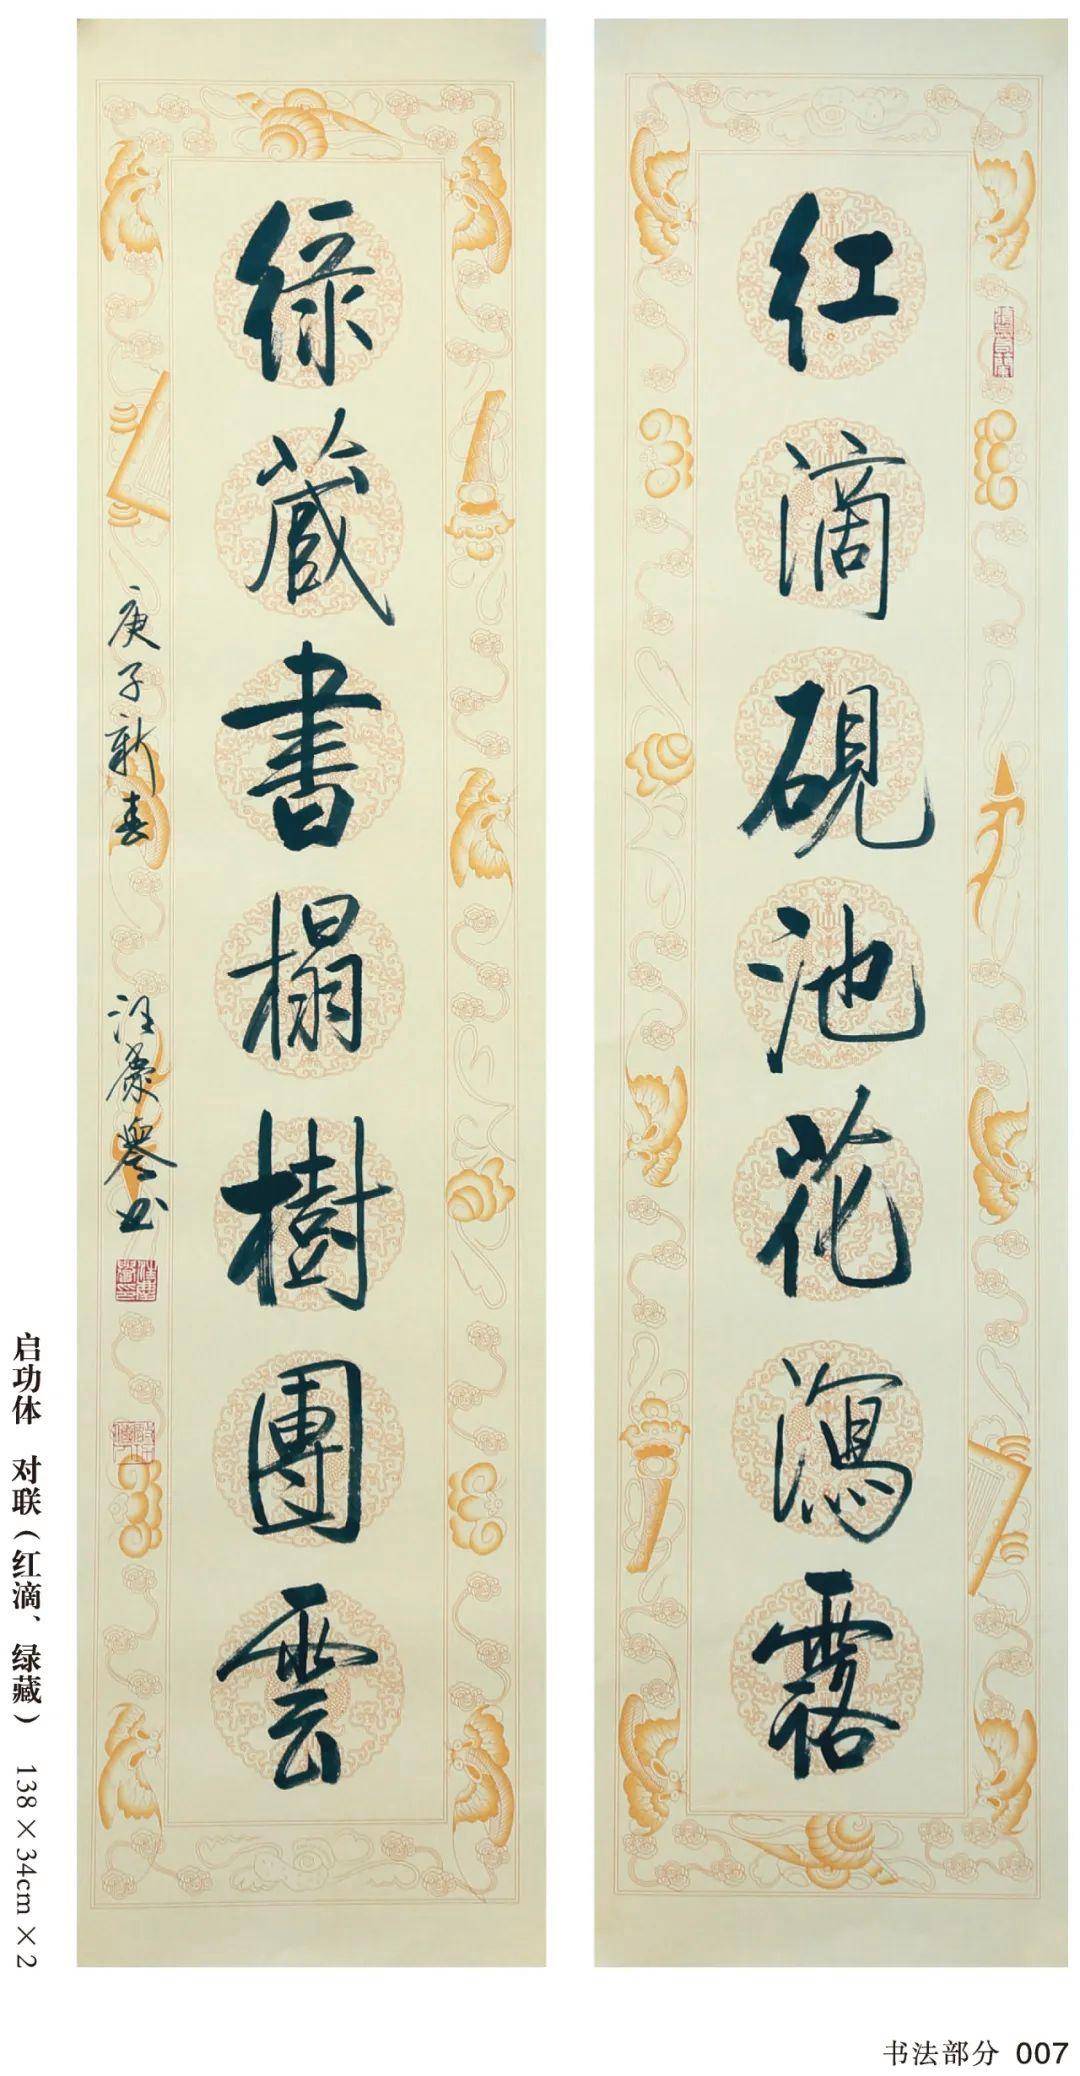 红滴砚池花瀉露
绿藏書榻樹團雲
庚子新春
启功体 对联（红滴、绿藏） 138×34cm×2
书法部分 007